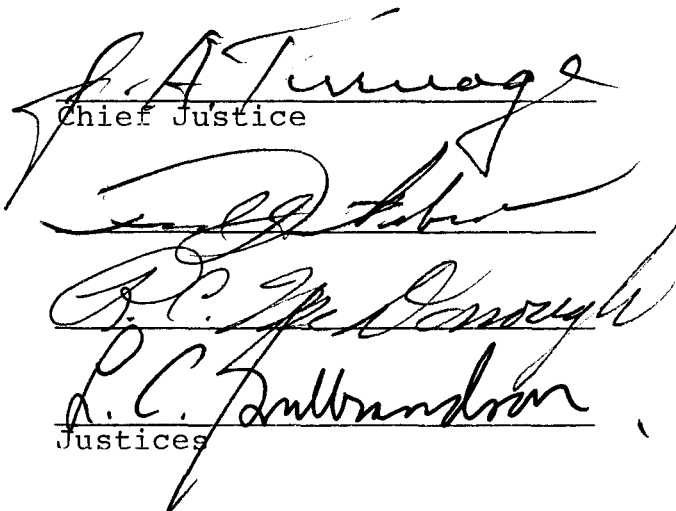 J. A. Turnage
Chief Justice
R. C. McDonough
L. C. Gulbrandson
Justices